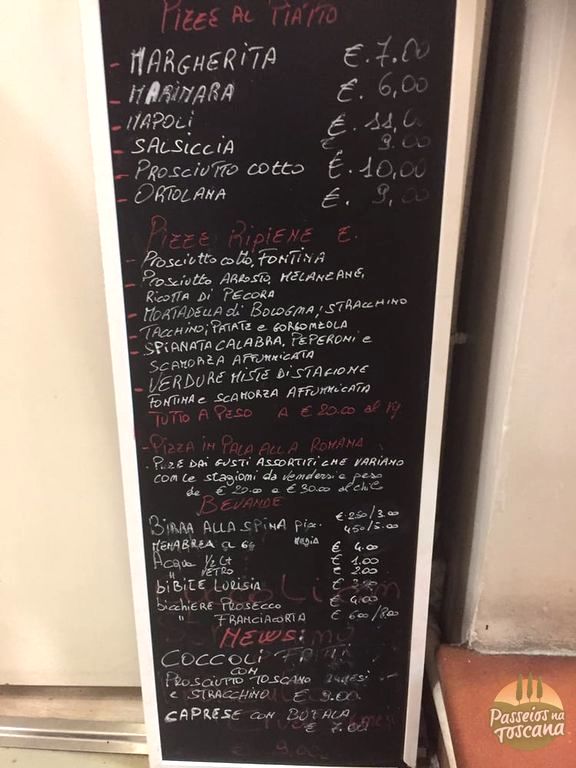 PIZZE AL PIATTO
- MARGHERITA €. 7.00
- MARINARA €. 6,00
- NAPOLI €. 11,0
- SALSICCIA € 9.00
- PROSCIUTTO COTTO €. 10,00
- ORTOLANA €. 9,00
PIZZE RIPIENE E.
- PROSCIUTTO COTTO, FONTINA
- PROSCIUTTO ARROSTO, MELANZANE,
RICOTTA DI PECORA
- MORTADELLA di BOLOGNA, STRACCHINO
- TACCHINO, PATATE e GORGONZOLA
- SPIANATA CALABRA, PEPERONI e
SCAMORZA AFFUMICATA
- VERDURE MISTE DI STAGIONE
FONTINA e SCAMORZA AFFUMICATA
TUTTO A PESO A € 20.00 al Kg
- PIZZA IN PALA ALLA ROMANA
. PIZZE DAI GUSTI ASSORTITI CHE VARIANO
con le stagioni da vendersi a peso
da € 20.00 a € 30.00 al chilo
BEVANDE
BIRRA ALLA SPINA pic. € 250/3.00
450/5.00
MENABREA cl 66 € 4.00
ACQUA 1/2 Lt € 1.00
" METRO € 2.00
BIBITE LURISIA €
bicchiere PROSECCO € 4,00
" FRANCIACORTA € 600/800
NEWS:
COCCOLI FRITTI
CON
PROSCIUTTO TOSCANO MESI
e STRACCHINO € 9.00
CAPRESE con BUFALA
€ 7.00
€ 9.00
Passeios na
Toscana